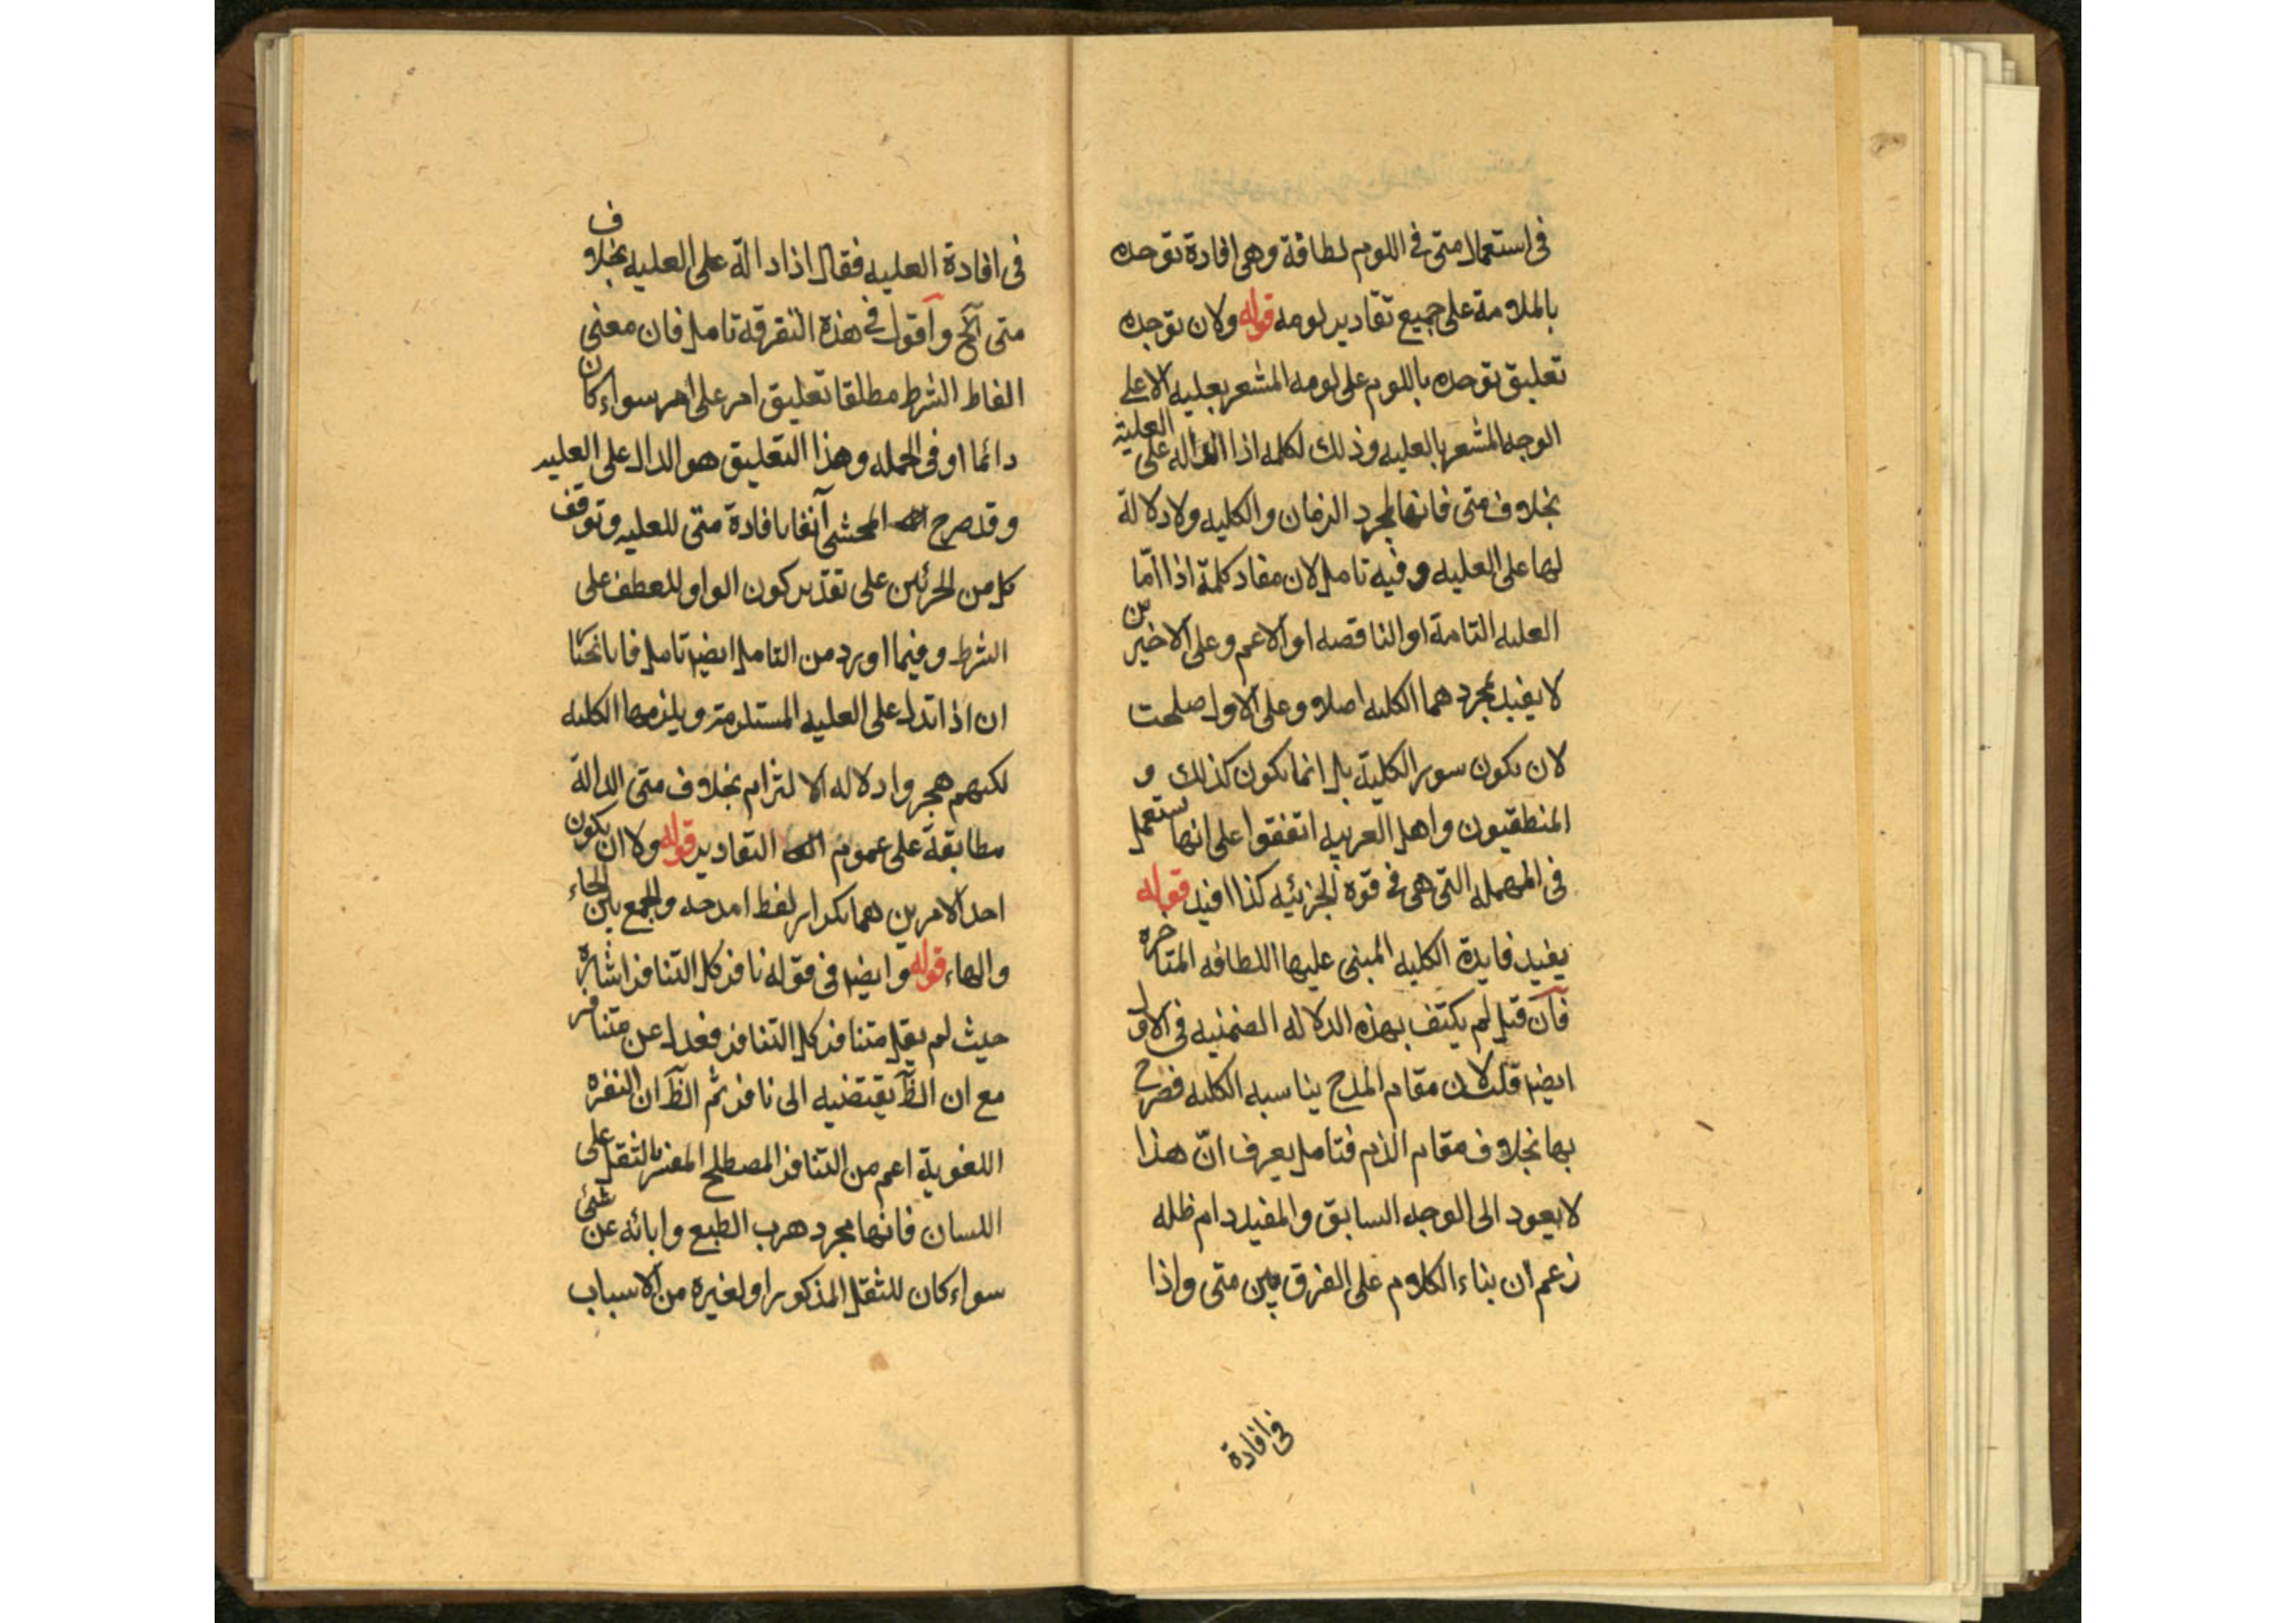 فى استعمال متى فى اللوم لطافة وهى افادة توحده
بالملامة على جميع تقادير لومه قوله ولان توحده
تعليق توحده باللوم على لومه المشعر بعليه الاعلى
الوجه المشعر بالعليه وذلك لكلمه اذا الداله على العلية
بخلاف متى فانها لمجرد الزمان والكليه ولا دلالة
لها على العليه وفيه تامل لان مفاد كلمة اذا امّا
العليه التامة او الناقصه او الاعم وعلى الاخيرين
لا يفيد بمجردهما الكليه اصلا وعلى الاول صلحت
لان يكون سور الكلية بل انما يكون كذلك و
المنطقيون واهل العربيه اتفقوا على انها ستعمل
فى المهمله التى هى فى قوة الجزئيه كذا افيد قوله
يفيد فايدة الكليه المبنى عليها اللطافه المتاخره
فان قيل لم يكتف بهذه الدلاله الضمنيه فى الاول
ايضا قلت لان مقام المدح يناسبه الكليه فصرح
بها بخلاف مقام الذم فتامل يعرف انّ هذا
لا يعود الى الوجه السابق والمفيد دام ظله
زعم ان بناء الكلام على الفرق بين متى واذا
فى افادة
فى افادة العليه فقال اذا دالة على العليه بخلاف
متى آلخ وآقول فى هذه التفرقه تامل فان معنى
الفاظ الشرط مطلقا تعليق امر على امر سواء كان
دائما او فى الجمله وهذا التعليق هو الدال على العليه
وقد صرح المحشى آنفا بافادة متى للعليه وتوقف
كل من الجزئين على تقدير كون الواو للعطف على
الشرط وفيما اورد من التامل ايضا تامل فانا نختا
ان اذا تدل على العليه المستلزمة ويلزمها الكليه
لكنهم هجروا دلاله الالتزام بخلاف متى الدالة
مطابقة على عموم التقادير قوله ولا ان يكون
احد الامرين هما تكرار لفظ امدحه والجمع بين الحاء
والهاء قوله وايضا فى قوله نافر كل التنافر اشاره
حيث لم يقل متنافر كل التنافر فعدل عن متنافر
مع ان الظّ يقتضيه الى نافر ثم الظّ ان النفره
اللغوية اعم من التنافر المصطلح المفسر بالثقل على
اللسان فانها مجرد هرب الطبع وابائه عن شئ
سواء كان للثقل المذكور او لغيره من الاسباب